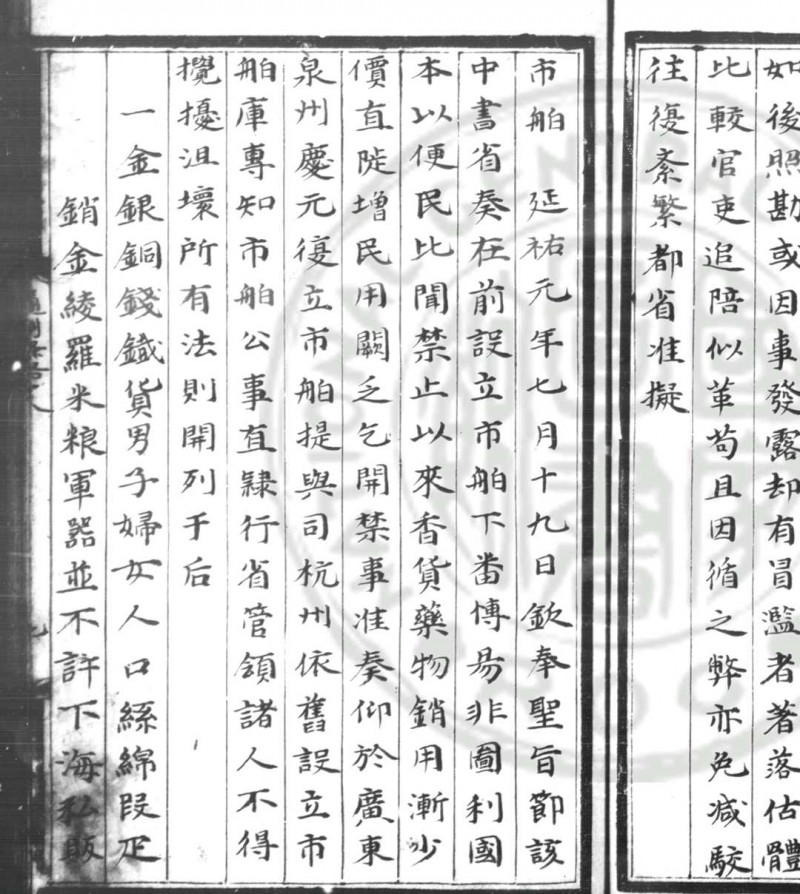 如後照勘或因事發露却有冒濫者著落估體
比較官吏追陪似革苟且因循之弊亦免減駮
往復紊繁都省准擬
市舶　延祐元年七月十九日欽奉聖旨節該
中書省奏在前設立市舶下番博易非圖利國
本以便民比聞禁止以來香貨藥物銷用漸少
價直陡增民用闕乏乞開禁事准奏仰於廣東
泉州慶元復立市舶提舉司杭州依舊設立市
舶庫專知市舶公事直隸行省管領諸人不得
攪擾沮壞所有法則開列于后
一金銀銅錢鐵貨男子婦女人口絲綿段疋
銷金綾羅米粮軍器並不許下海私販